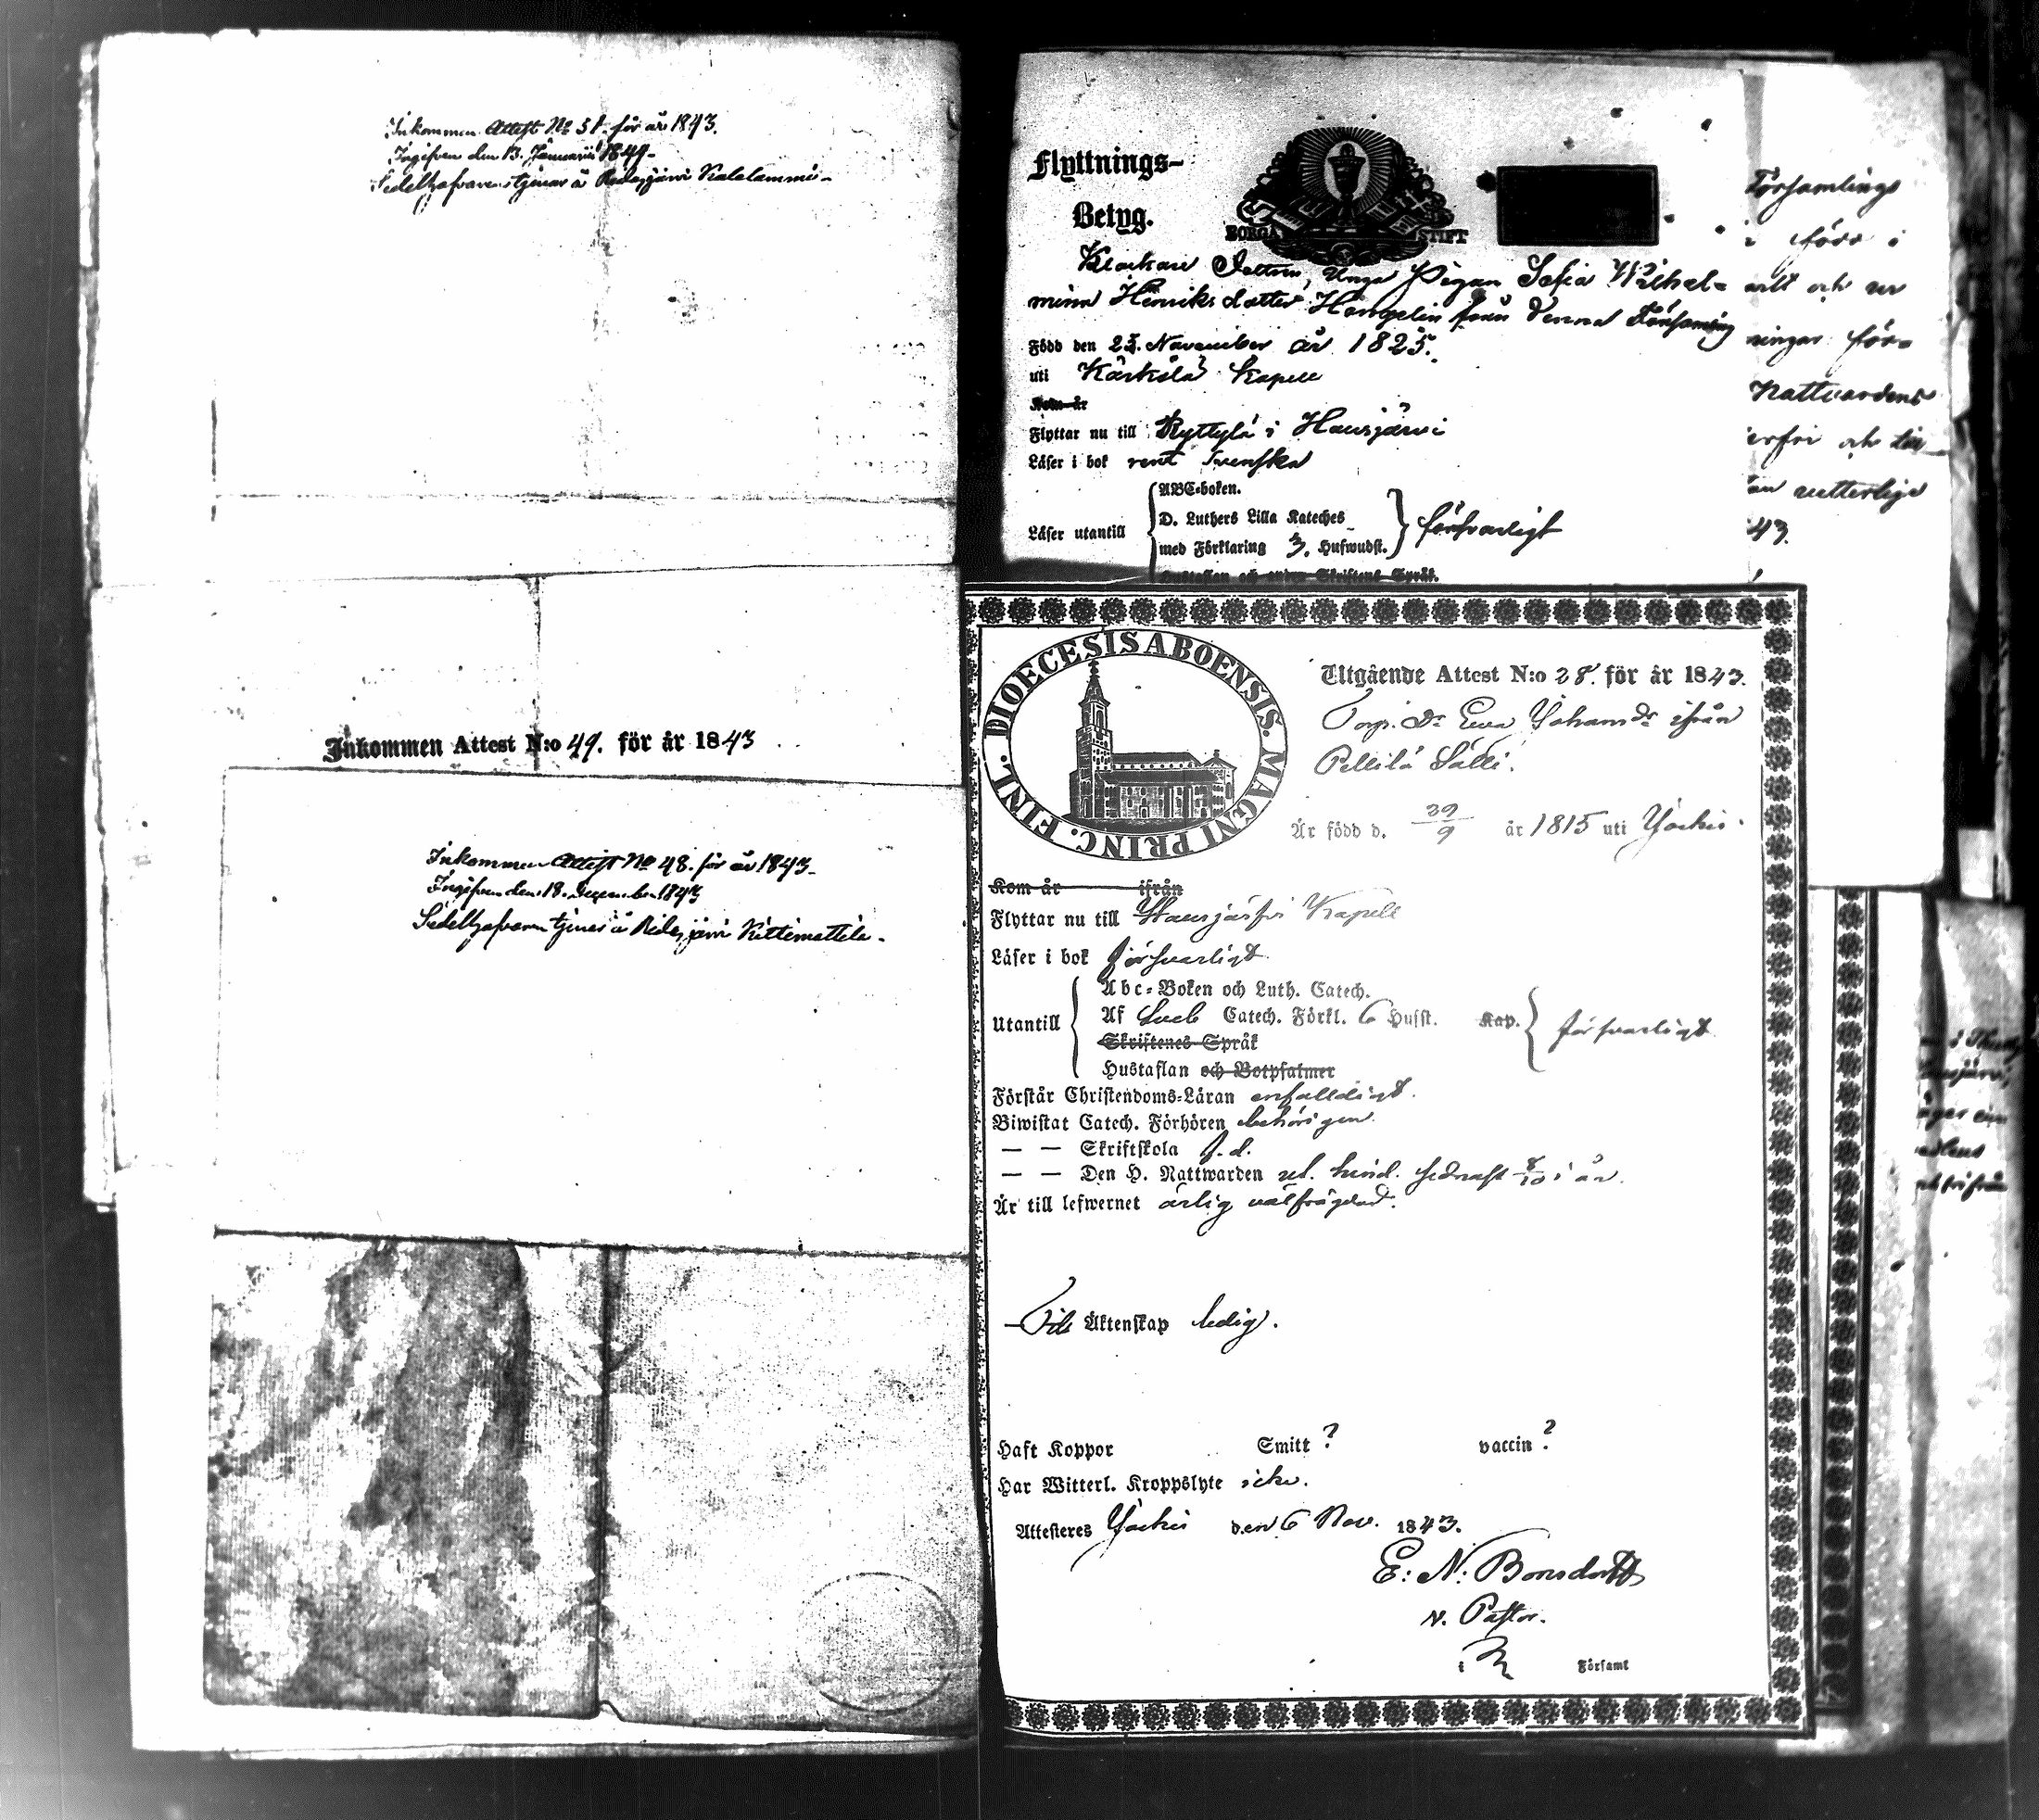 Inkommen Attest No 51. för år 1843.
Ingifven den 13. Januarii 1844.
Sedelhafvaren tjenar å Ridasjärvi Kalalammi.
Inkommen Attest N:o 49. för år 1843
Inkommen Attest No 48. för år 1843.
Ingifven den 18. December 1843
Sedelhafvaren tjenar å Ridasjärvi Kittimattila.
Flyttnings-
Betyg.
BORGÅ STIFT
Klockare Dottren, Unga Pigan Sofia Wilhel-
mina Henriksdotter Hongelin från denna Församling
Född den 23. November år 1825.
uti Kärkölä Kapell
Kom år
Flyttar nu till Ryttylä i Hausjärvi
Läser i bok rent Svenska
Läser utantill
ABC-boken.
D. Luthers Lilla Kateches
med Förklaring 3. Hufwudst.
försvarligt
Hustaflan och andra Skriftens Språk.
Församlings
i född i
och
ningar för-
Nattvardens
och
witterliga
43.
DIOECESIS ABOENSIS. MAGNI PRINC. FINL.
Utgående Attest N:o 28. för år 1843.
Torp. Dr Eva Johansdr ifrån
Pellilä Sälli.
Är född d. 29/9 år 1815 uti Jockis.
Kom år ifrån
Flyttar nu till Hausjärfvi Kapell
Läser i bok försvarligt
Utantill
Abc-Boken och Luth. Catech.
Af Sveb Catech. Förkl. 6 Husst. Kap.
försvarligt
Skriftenes Språk
Hustaflan och Botpsalmer
Förstår Christendoms-Läran enfalldigt.
Biwistat Catech. Förhören behörigen
— — Skriftskola J. d.
— — Den H. Nattwarden ut. hind. sednast 8/10 i år.
Är till lefwernet ärlig välfrägdad.
Till Äktenskap ledig.
Haft Koppor Smitt ? vaccin ?
Har Witterl. Kroppslyte icke.
Attesteres Jockis den 6 Nov. 1843.
E: N: Bonsdorff
v. Pastor.
i Församl